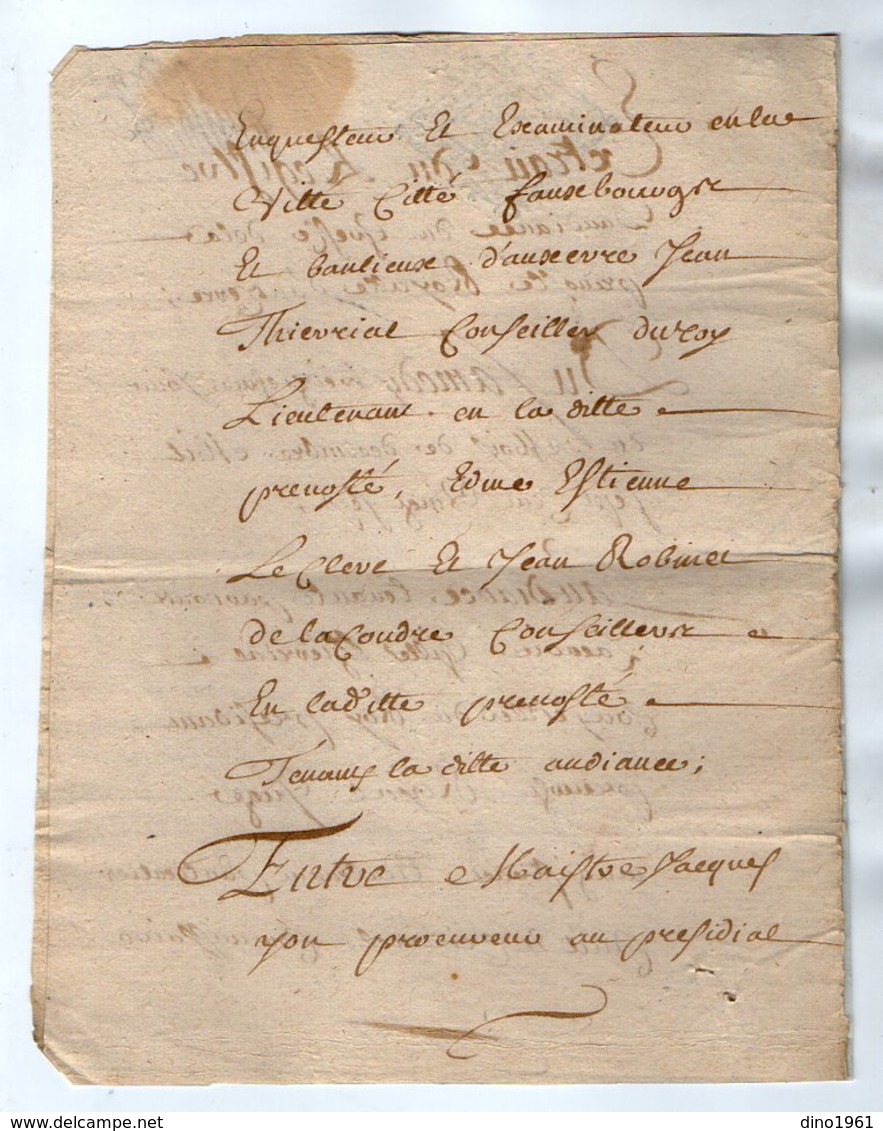 Enquesteur Et Examinateur en la
Ville Citté fauxbourgs
Et banlieux d'auxerre Jean
Thierriat Conseiller du roy
Lieutenant en la ditte
prevosté, Edme Estienne
Le Clerc Et Jean Robinet
de la Coudre Conseillers
En laditte prevosté
Tenants la ditte audiance;
Entre Maistre Jacques
yon procureur au presidial
dino1961